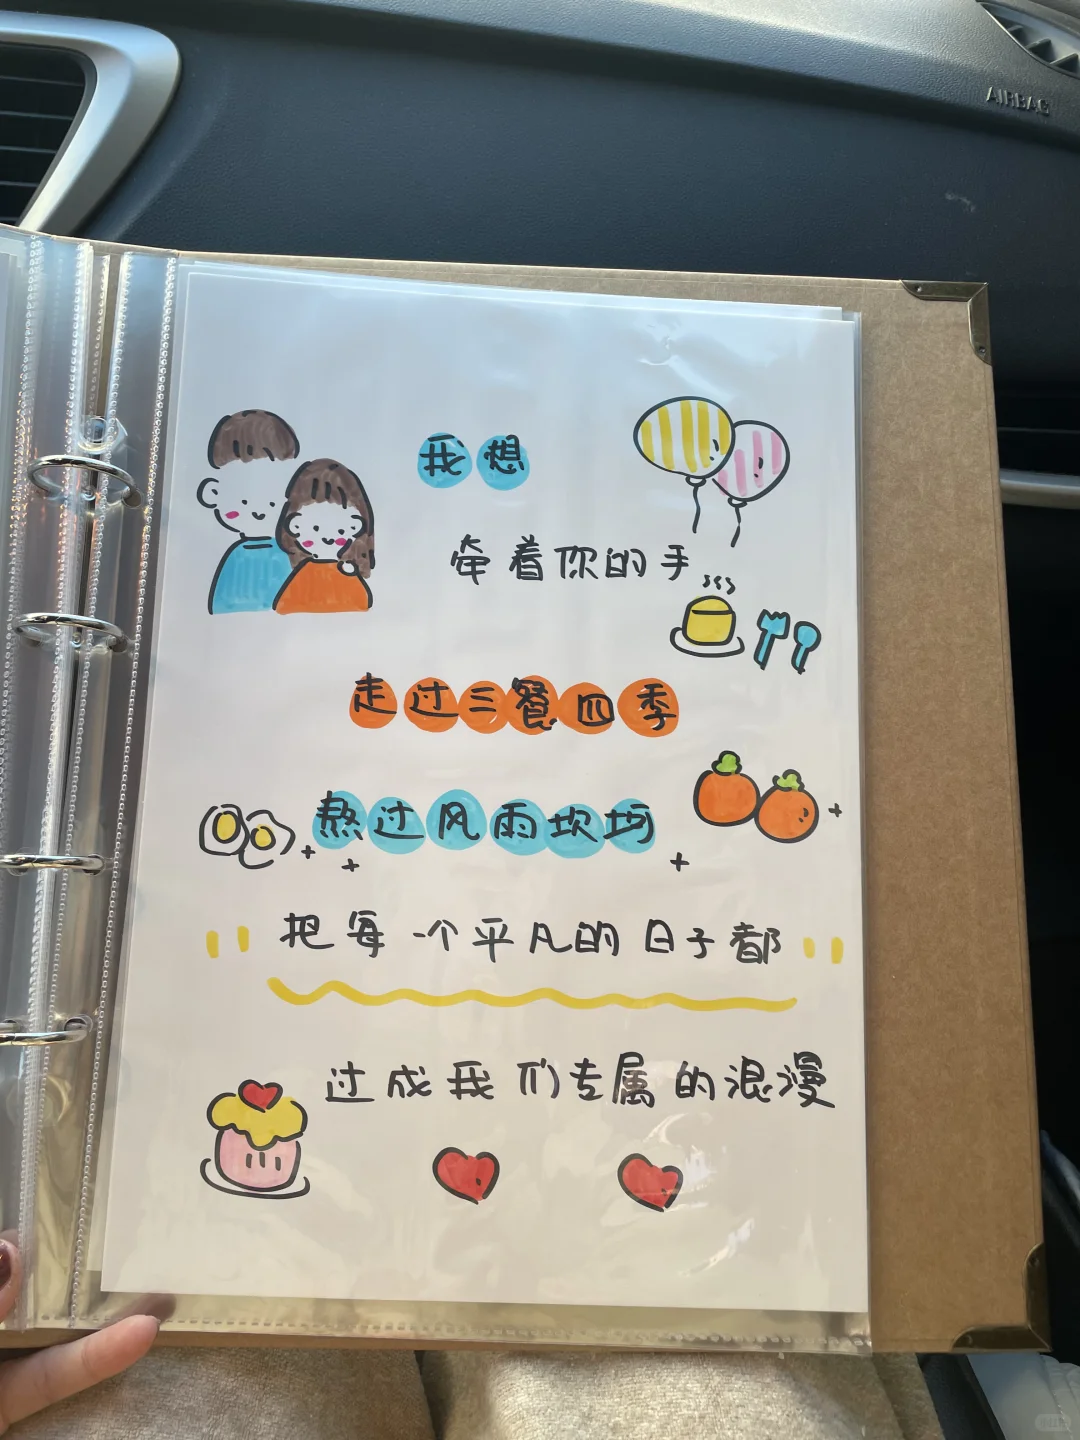 AIRBAG
我想
牵着你的手
走过三餐四季
熬过风雨坎坷
把每一个平凡的日子都
过成我们专属的浪漫